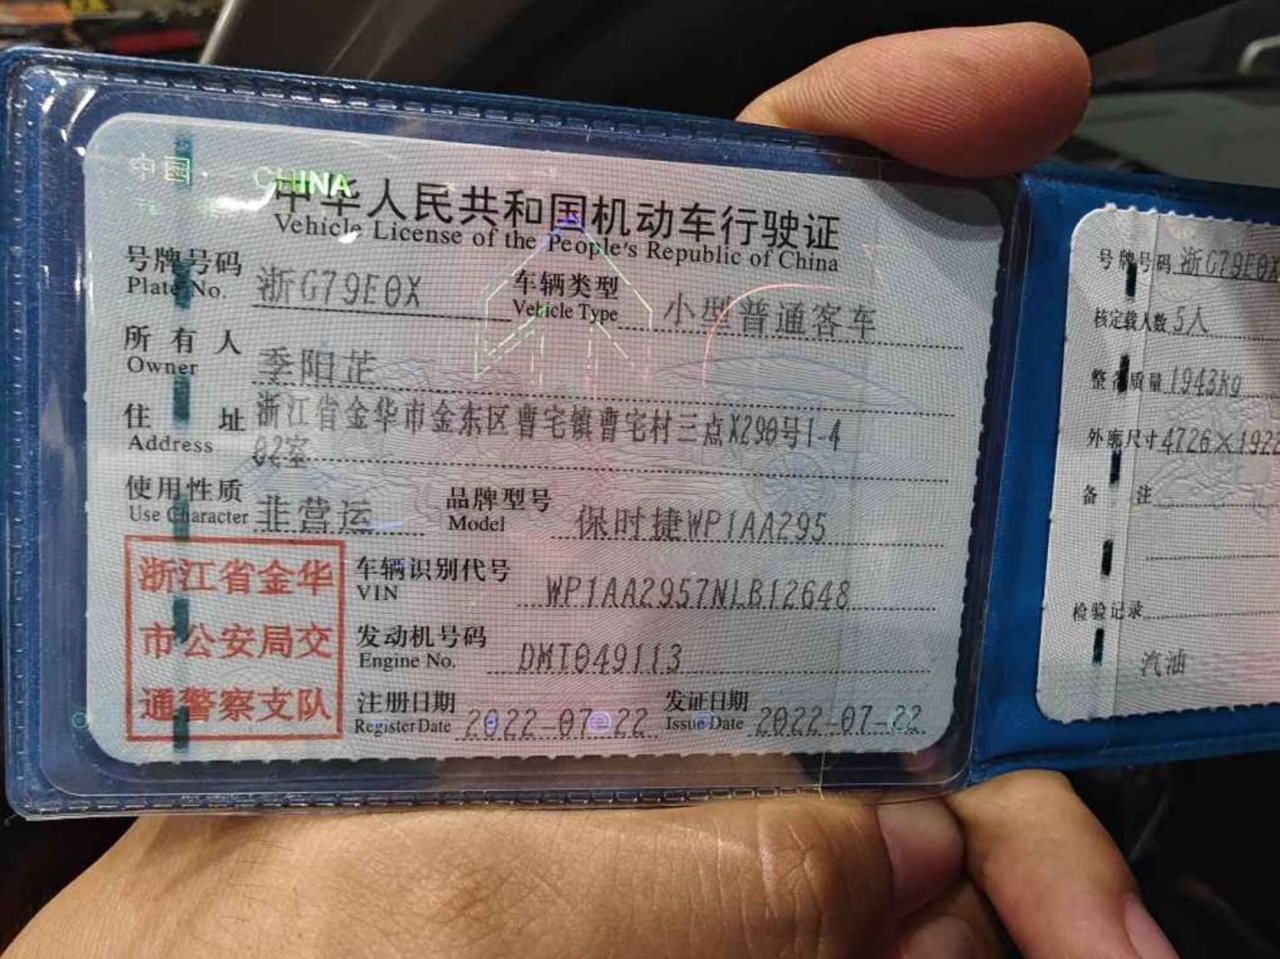 中国 CHINA
中华人民共和国机动车行驶证
Vehicle License of the People's Republic of China
号牌号码 浙G79E0X 车辆类型 小型普通客车
Plate No. Vehicle Type
所有人 季阳芷
Owner
住址 浙江省金华市金东区曹宅镇曹宅村三点X290号1-4
Address 02室
使用性质 非营运 品牌型号 保时捷WP1AA295
Use Character Model
浙江省金华
市公安局交
通警察支队
车辆识别代号 WP1AA2957NLB12648
VIN
发动机号码 DMT049113
Engine No.
注册日期 2022-07-22 发证日期 2022-07-22
Register Date Issue Date
号牌号码 浙G79E0X
核定载人数 5人
整备质量 1943kg
外廓尺寸 4726×1922
备注
检验记录
汽油